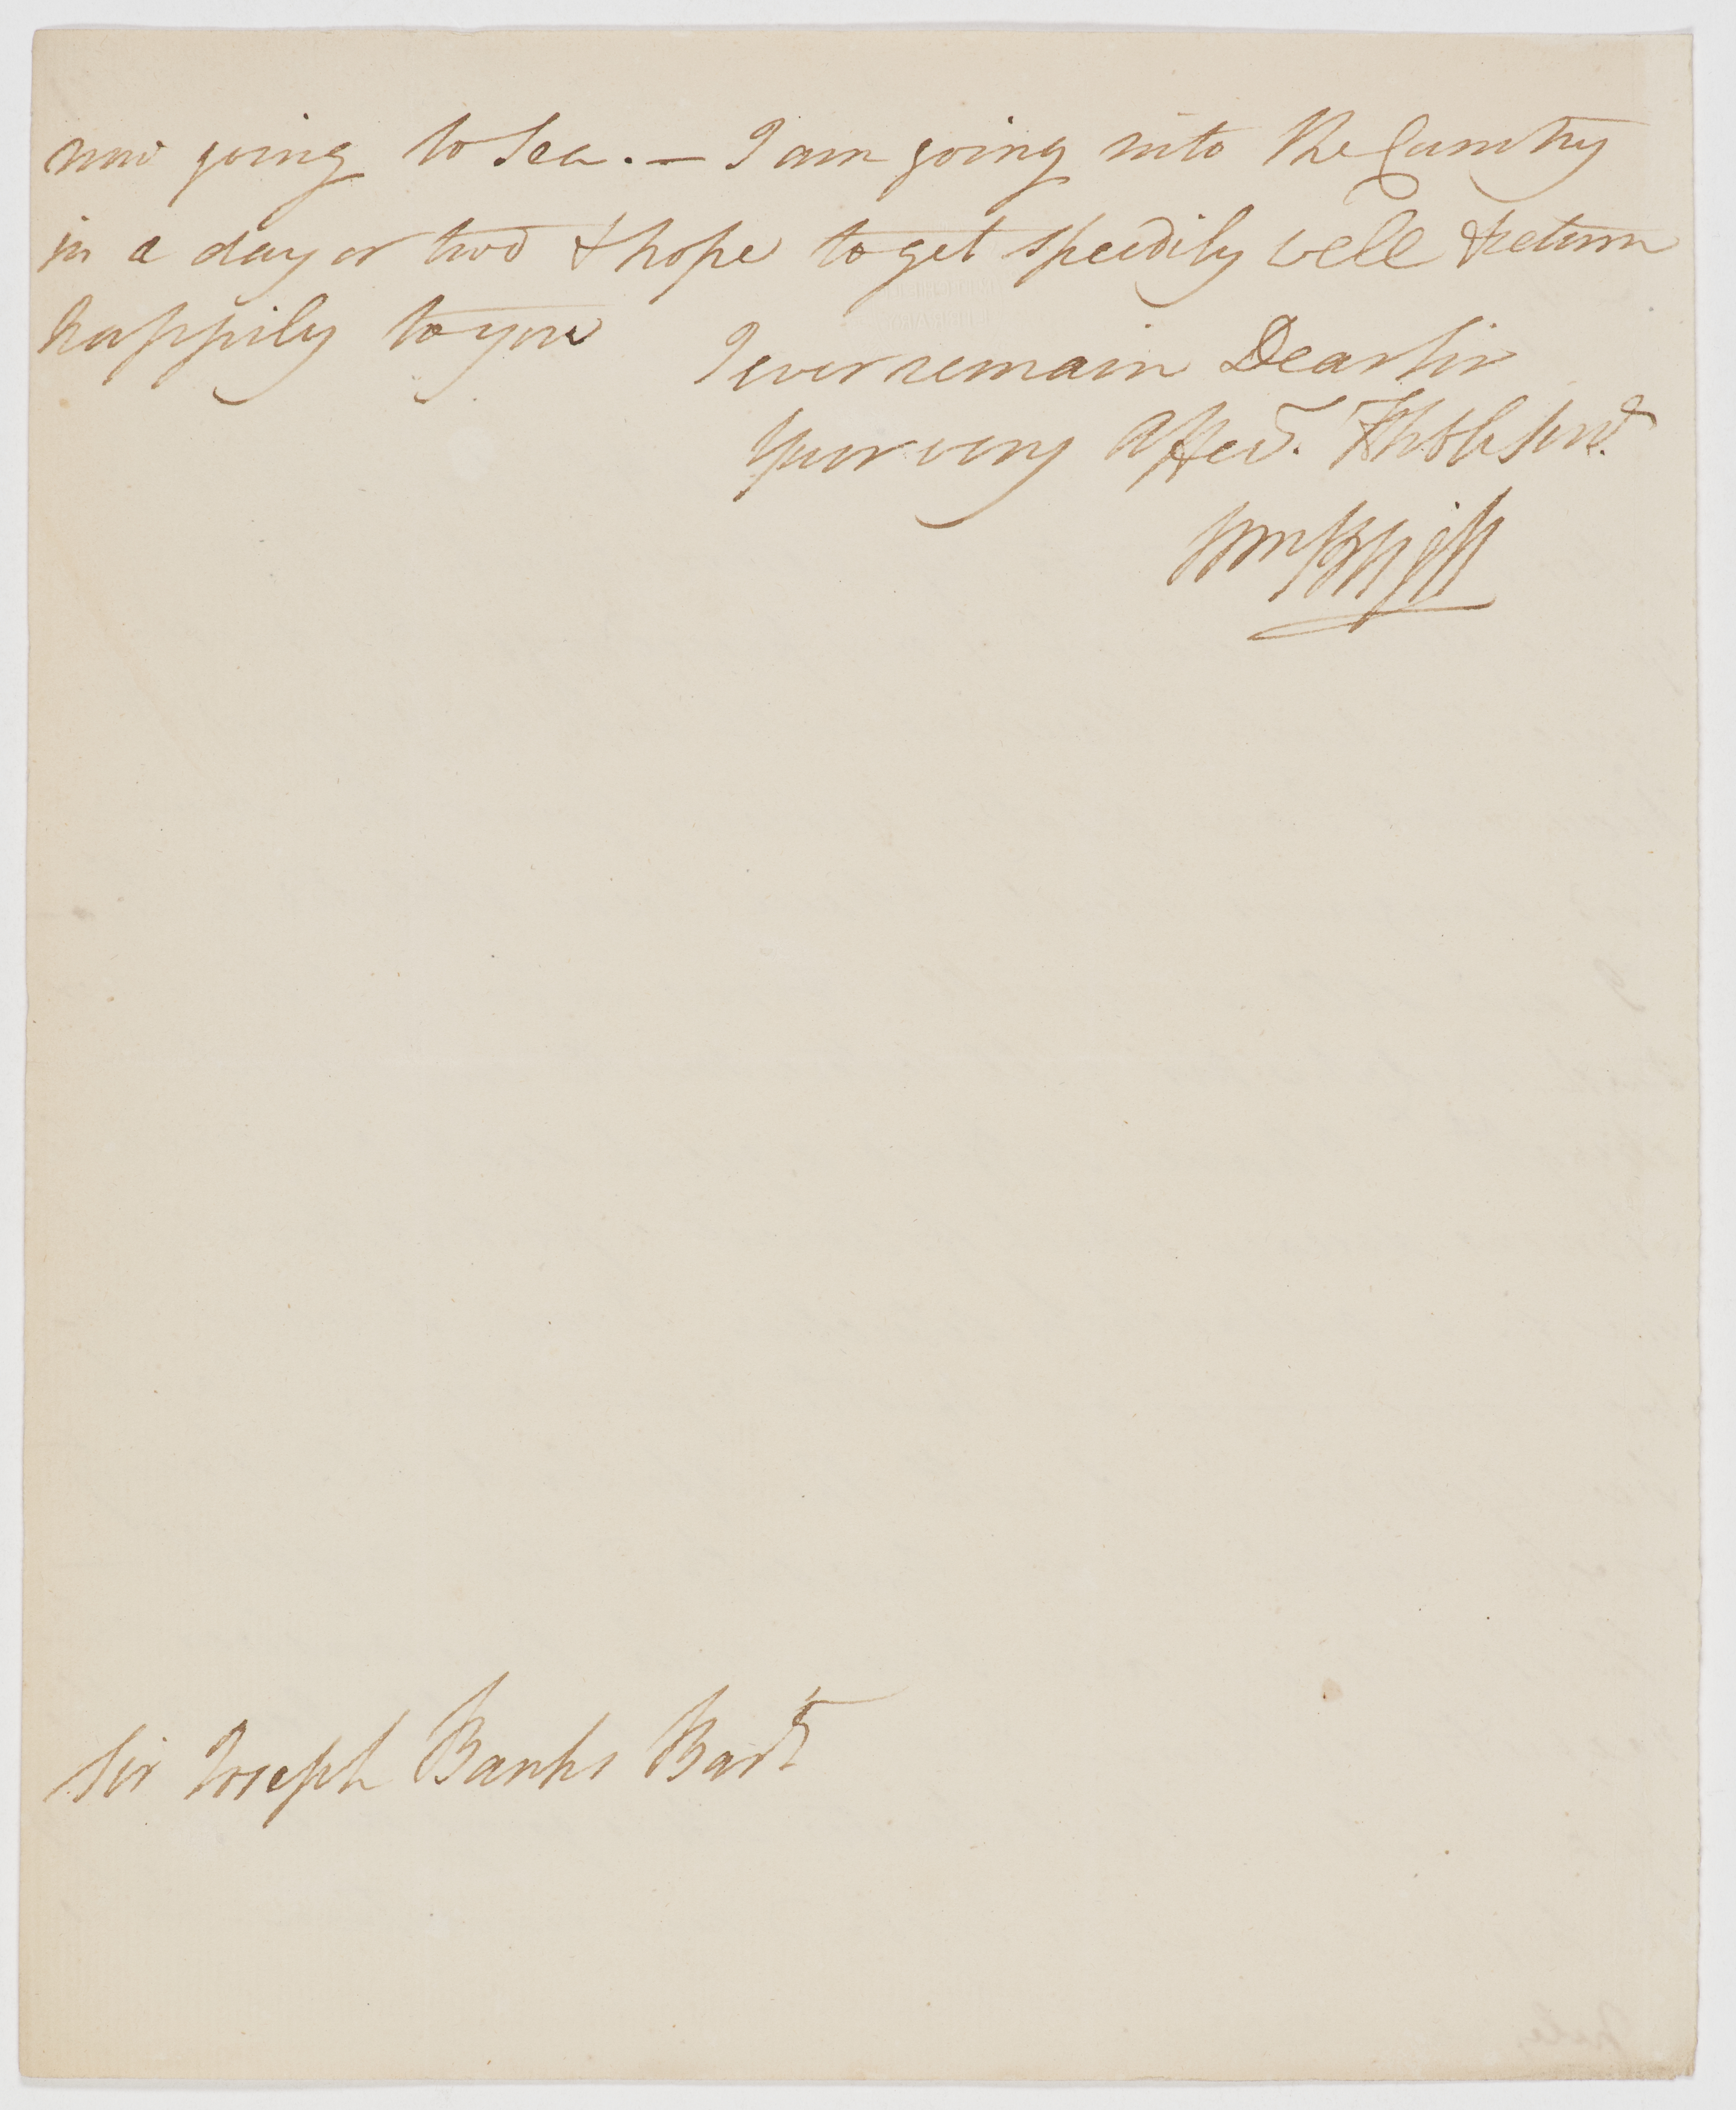 now going to Sea. — I am going into the Country
in a day or two & hope to get speedily well & return
happily to you
I ever remain Dear Sir
Your very Affect. & hble servt.
Wm Bligh
Sir Joseph Banks Bart